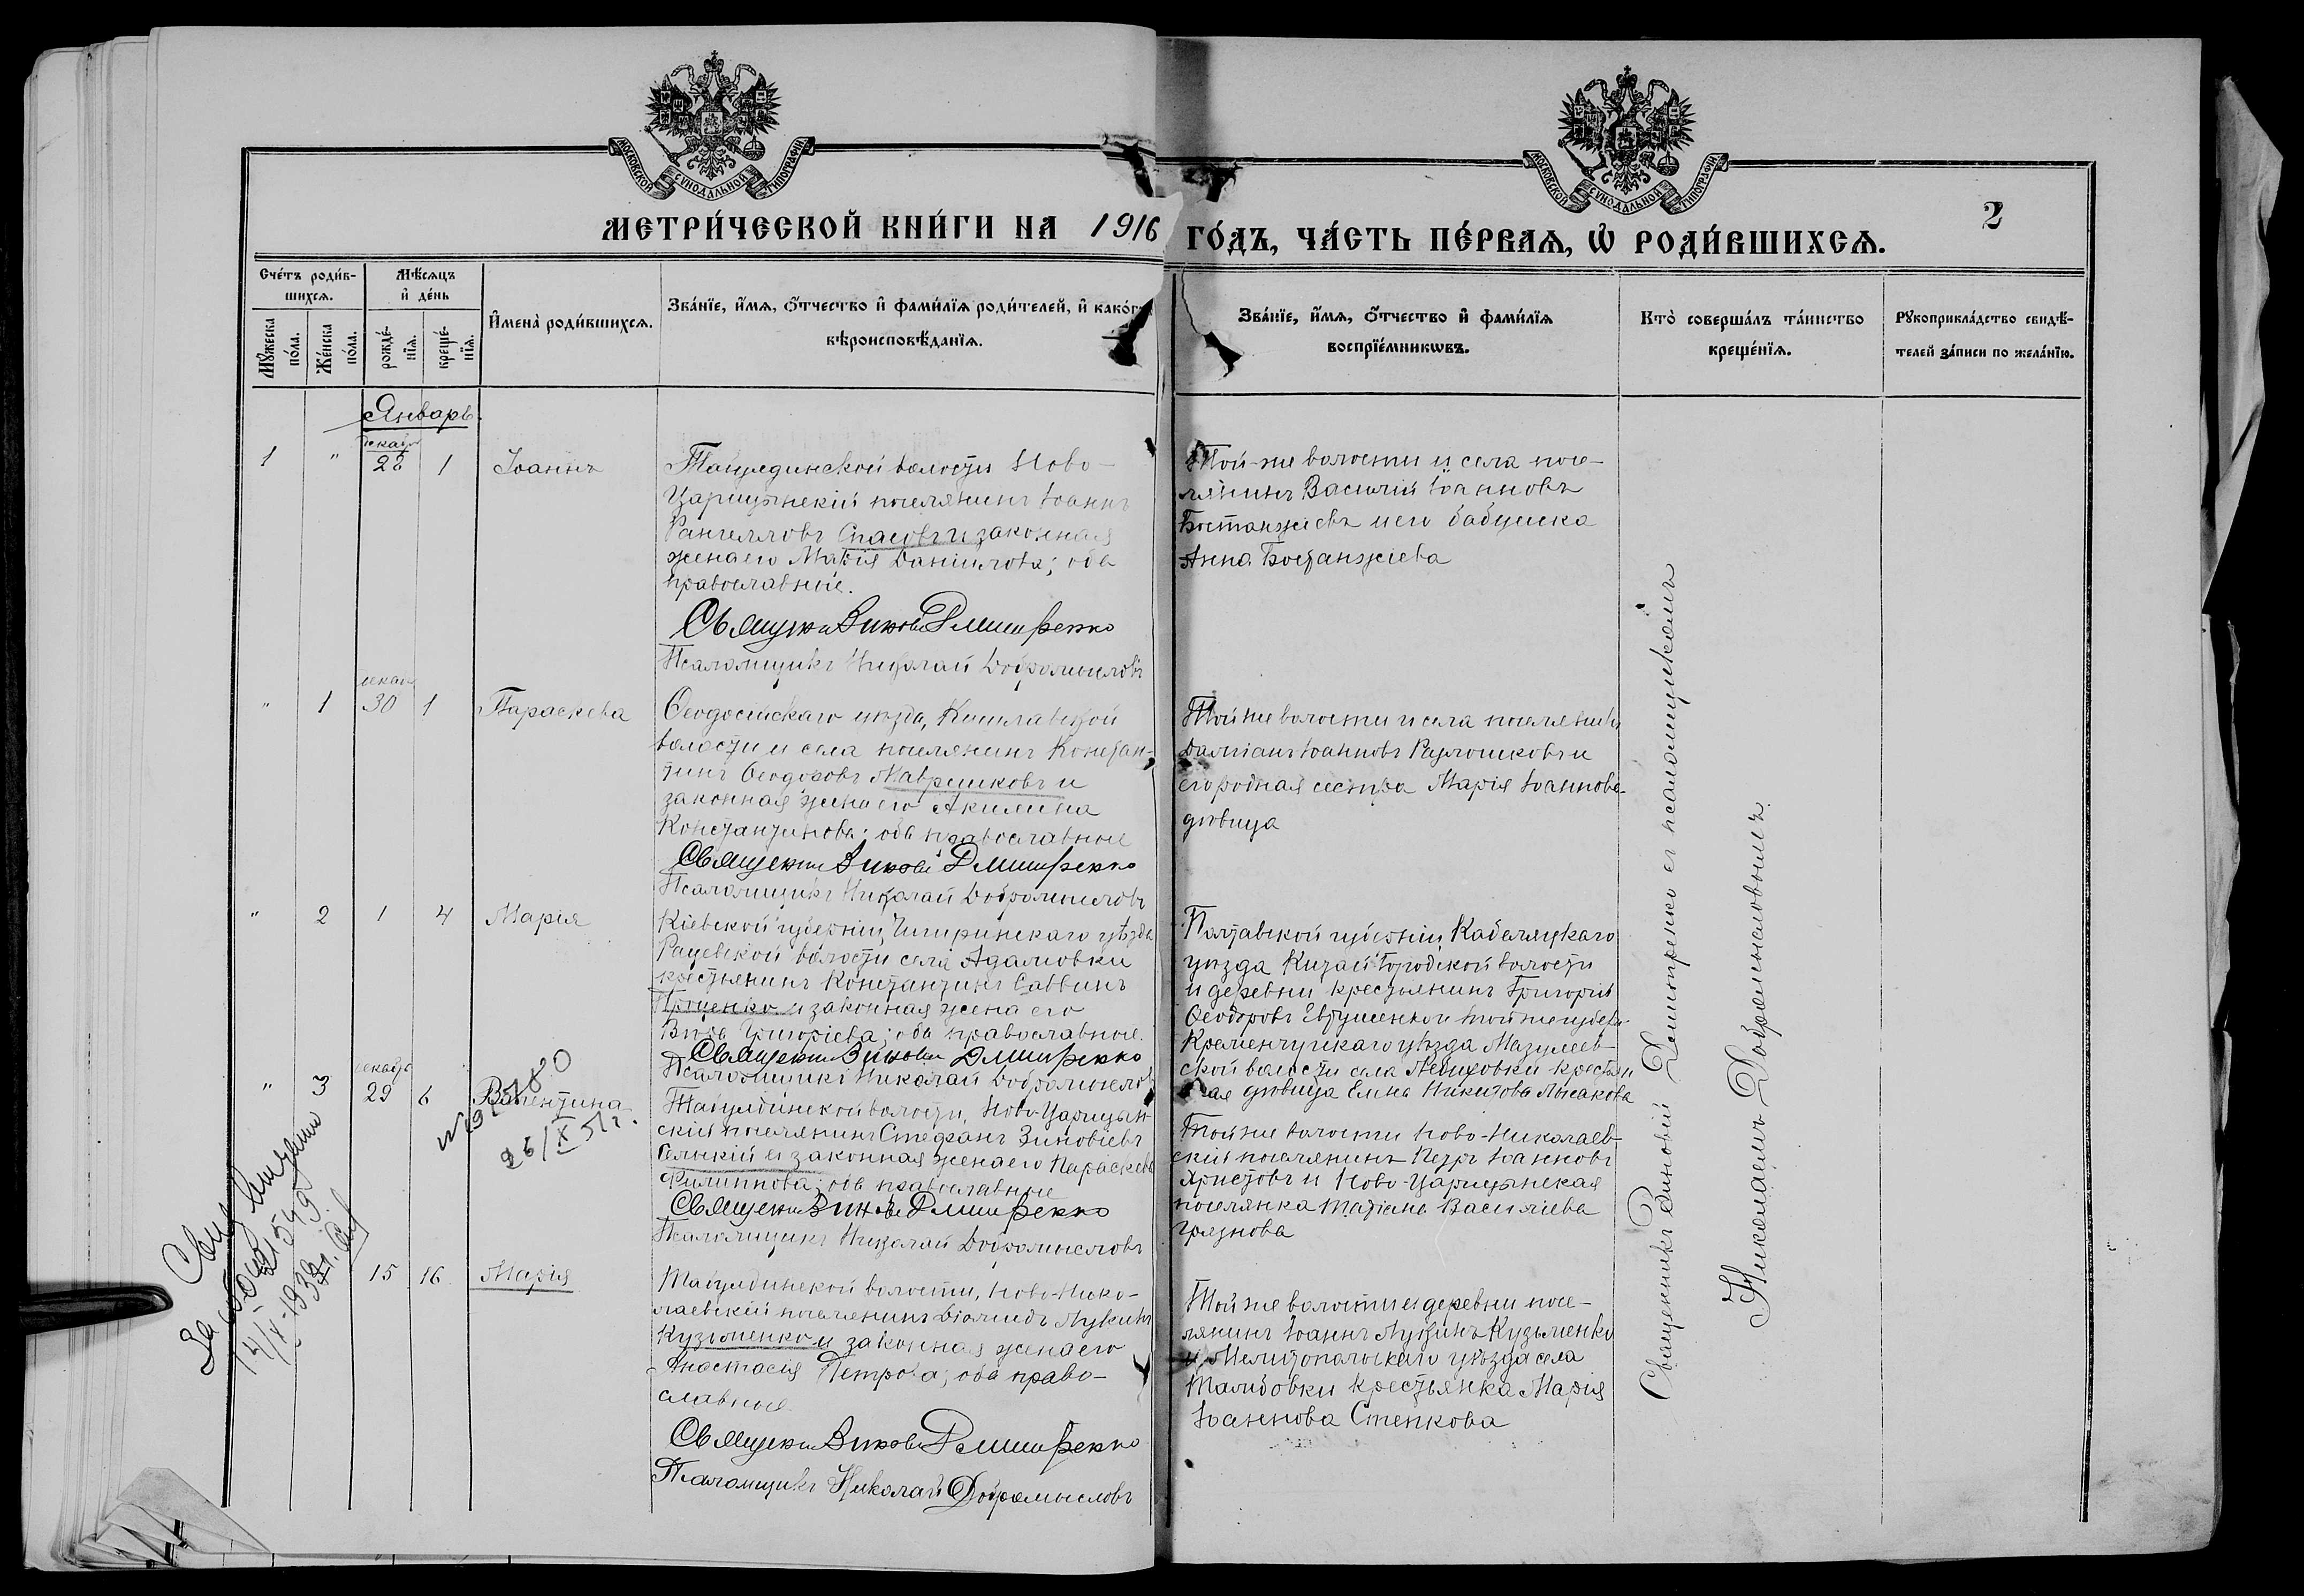 МОСКОВСКОЙ СѴНОДАЛЬНОЙ ТИПОГРАФІИ
МОСКОВСКОЙ СѴНОДАЛЬНОЙ ТИПОГРАФІИ
МЕТРИ́ЧЕСКОЙ КНИ́ГИ НА 1916
ГО́ДЪ, ЧА́СТЬ ПЕ́РВАѦ, Ѡ҆ РОДИ́ВШИХСѦ.
2
Сче́тъ роди́в-
шихсѧ.
Мꙋ́жеска
по́ла.
Же́нска
по́ла.
Мѣ́сѧцъ
и҆ де́нь
рожде́-
нїѧ.
креще́-
нїѧ.
И҆мена̀ роди́вшихсѧ.
Зва́нїе, и҆́мѧ, ѻ҆́тчество и҆ фами́лїѧ роди́телей, и҆ како́гѡ
вѣроисповѣ́данїѧ.
Зва́нїе, и҆́мѧ, ѻ҆́тчество и҆ фами́лїѧ
воспрїе́мникѡвъ.
Кто̀ соверша́лъ та́инство
креще́нїѧ.
Рꙋкоприкла́дство свидѣ́-
телей за́писи по жела́нїю.
Январь.
декабр
1 " 28 1 Іоаннъ
Табулдинской волости Ново-
Царицынскій поселянинъ Іоаннъ
Рангелловъ Спасовъ и законная
жена его Марія Даніилова; оба
православные.
Священни Зиновiй Демитренко
Псаломщикъ Николай Добромысловъ
Той-же волости и села посе-
лянинъ Василій Іоанновъ
Бостанжіевъ и его бабушка
Анна Бостанжіева
декаб
" 1 30 1 Параскева
Ѳеодосійскаго уѣзда, Кишлавской
волости и села поселянинъ Констан-
тинъ Ѳеодоровъ Мавришковъ и
законная жена его Акилина
Константинова; оба православные
Священни Зиновiй Демитренко
Псаломщикъ Николай Добромысловъ
Той же волости и села поселянинъ
Даміанъ Іоанновъ Радлошковъ и
его родная сестра Марія Іоаннова-
дѣвица
" 2 1 4 Марія
Кіевской губерніи, Чигиринскаго уѣзда
Рацевской волости села Адамовки
крестьянинъ Константинъ Саввинъ
Проценко и законная жена его
Вѣра Григоріева; оба православные.
Священни Зиновiй Демитренко
Псаломщикъ Николай Добромысловъ
Полтавской губерніи, Кобеляцкаго
уѣзда Китай-Городской волости
и деревни крестьянинъ Григорій
Ѳеодоровъ Евтушенко и той же губерн.
Кременчугскаго уѣзда
ской волости села крестьян
ская дѣвица Елена Никитова Лысакова
декабр
" 3 29 6 Валентина
26/X 51г.
Табулдинской волости, Ново-Царицын-
скій поселянинъ Стефанъ Зиновіевъ
Сельскій и законная жена его Параскева
Филиппова; оба православные
Священни Зиновiй Демитренко
Псаломщикъ Николай Добромысловъ
Той же волости Ново-Николаев-
скій поселянинъ Петръ Іоанновъ
Христовъ и Ново-Царицынская
поселянка Татіана Василіева
Грязнова
15 16 Марія
Табулдинской волости, Ново-Нико-
лаевскій поселянинъ Діомидъ Лукинъ
Кузьменко и законная жена его
Анастасія Петрова; оба право-
славные
Священни Зиновiй Демитренко
Псаломщикъ Николай Добромысловъ
Той же волости и деревни посе-
лянинъ Іоаннъ Лукинъ Кузьменко
и, Мелитопольскаго уѣзда села
крестьянка Марія
Іоаннова Степкова
Священникъ Зиновій Демитренко съ псаломщикомъ
Николаемъ Добромысловымъ